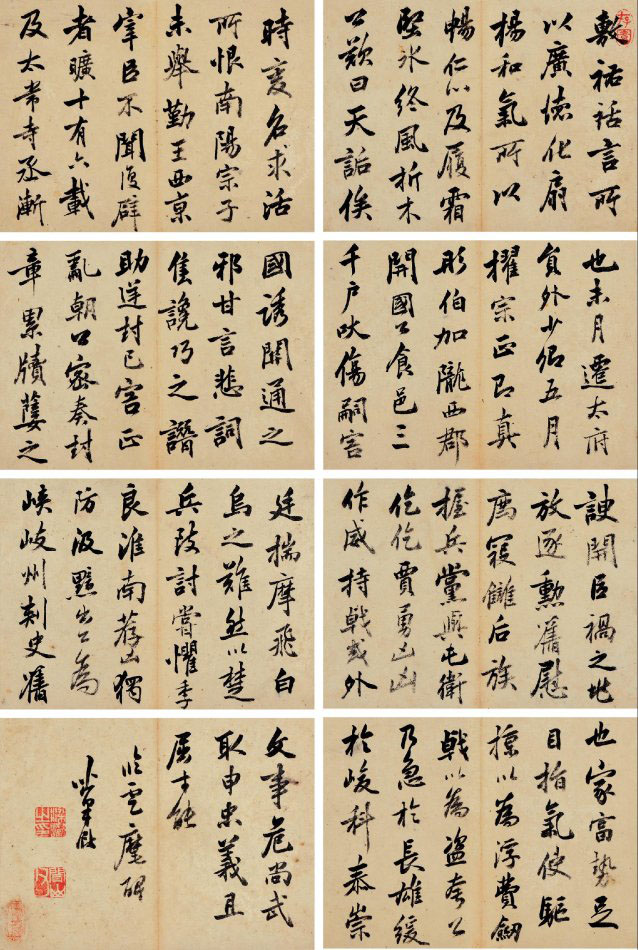 敷祐話言所
以廣德化扇
揚和氣所以
暢仁心及履霜
堅冰終風折木
公歎曰天詬俟
時變名求活
所恨南陽宗子
未舉勤王西京
宰臣不聞復辟
者曠十有六載
及太常寺丞漸
也未月遷太府
員外少卿五月
擢宗正即真
彤伯加隴西郡
開國公食邑三
千戶吠傷嗣害
國誘閑通之
邪甘言悲詞
售讒巧之譖
助逆封己害正
亂朝公密奏封
章累牘萋之
諛閑臣禍之地
放逐勳舊慰
薦寇讎后族
握兵黨與屯衛
仡仡賈勇凶凶
作威持戟或外
廷揣摩飛白
烏之難然以楚
兵致討嘗懼季
良淮南荐凶獨
防汲黯出公為
峽岐州刺史舊
也家富勢足
目指氣使驅
掠以為浮費劒
戟以為盜夸公
乃急於長雄緩
於峻科恭崇
文事危尚武
取申忠義且
厲士能
臨雲麾碑